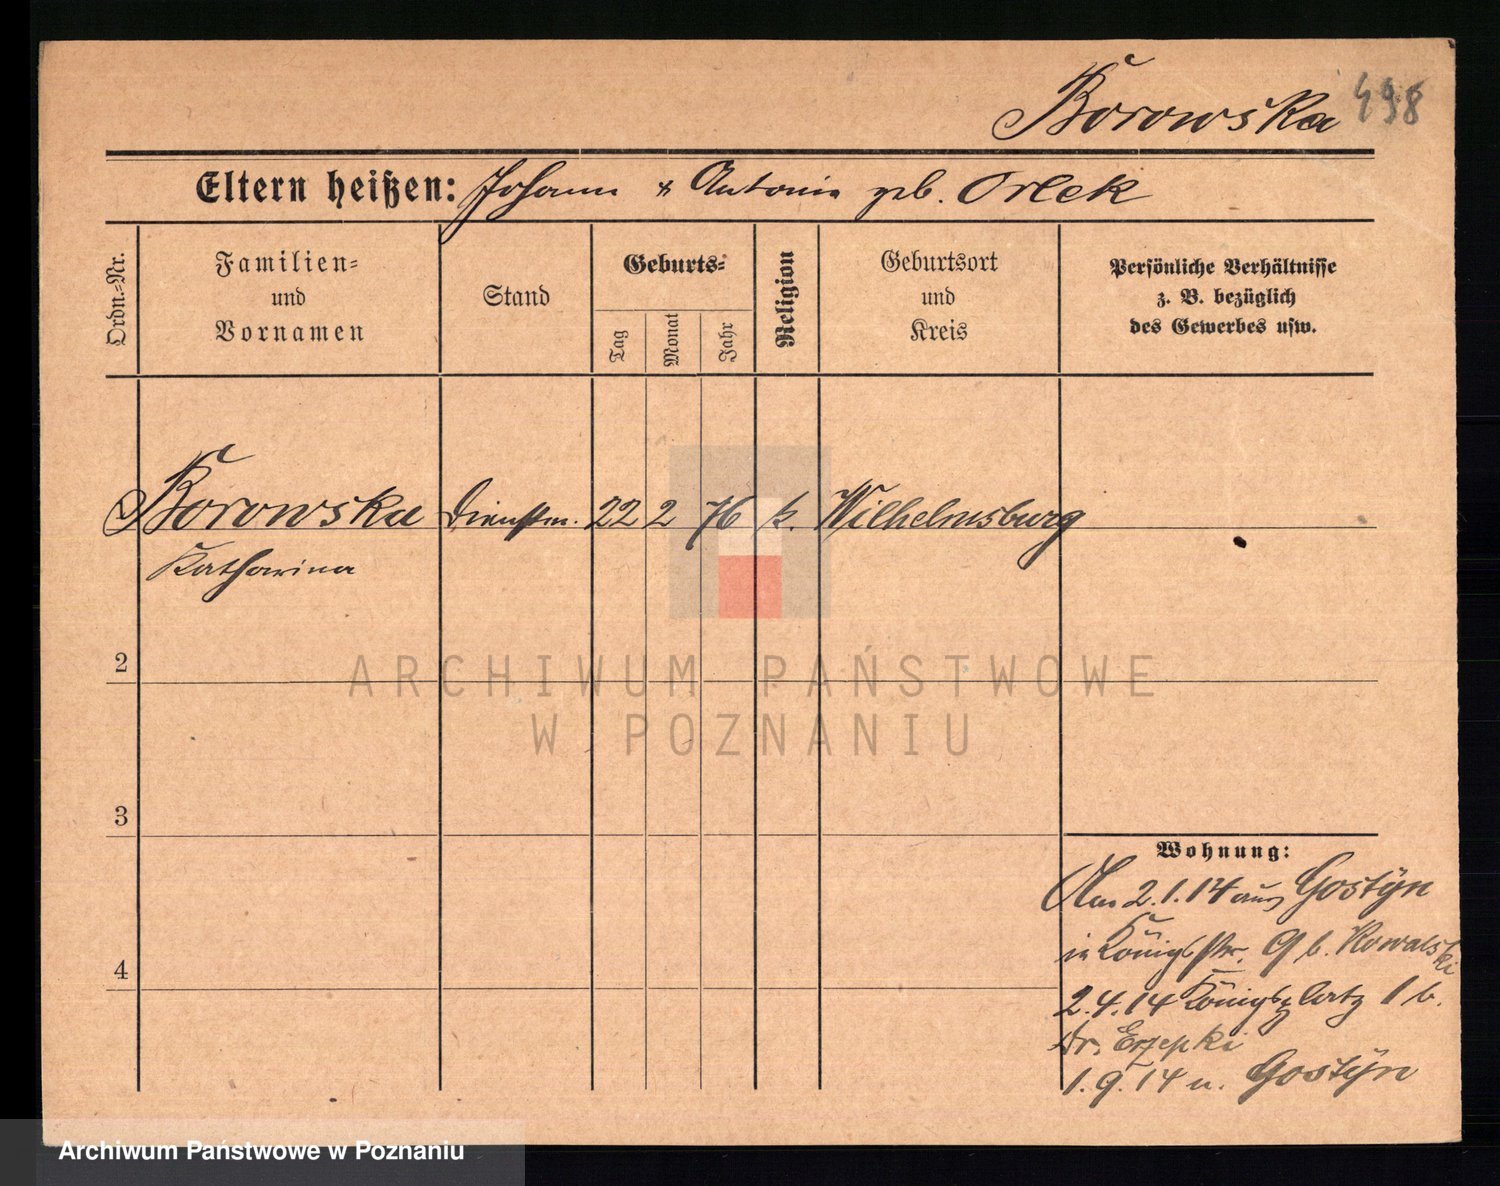 Borowska 498
Eltern heißen: Johann & Antonie geb. Orlek
Ordn.-Nr.
Familien-
und
Vornamen
Stand
Geburts-
Tag
Monat
Jahr
Religion
Geburtsort
und
Kreis
Persönliche Verhältnisse
z. B. bezüglich
des Gewerbes usw.
Borowska Dienstm. 22 2 76 k. Wilhelmsburg
Katharina
2
3
4
Wohnung:
Am 2.1.14 aus Gostÿn
in Königstr. 9 b. Kowalski
2.4.14 Königsplatz 1 b.
Dr. Erzepki
1.9.14 n. Gostÿn
ARCHIWUM PAŃSTWOWE
W POZNANIU
Archiwum Państwowe w Poznaniu